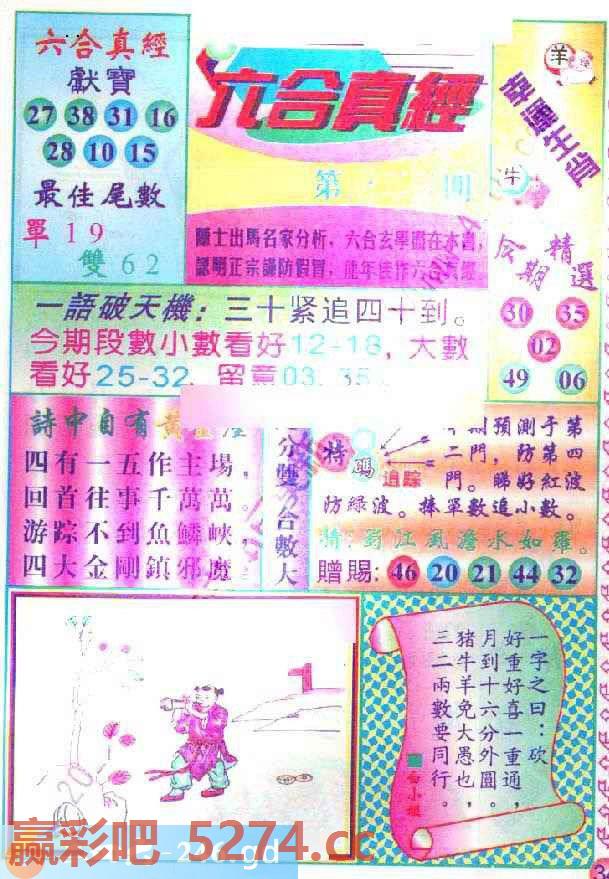 六合真經
獻寶
27 38 31 16
28 10 15
最佳尾數
單19
雙62
六合真經
第 期
隱士出馬名家分析,六合玄學盡在本書,
認明正宗謹防假冒,龍年佳作六合真經
羊
幸運生肖
牛
今期精選
30 35
02
49 06
一語破天機:三十紧追四十到。
今期段數小數看好12-18,大數
看好25-32,留意03.35
詩中自有黃
四有一五作主場,
回首往事千萬萬。
游踪不到魚鱗峽,
四大金剛鎮邪魔
分雙合數大
特碼追踪
期預測于第
二門,防第四
門。睇好紅波
防綠波。捧單數追小數。
特:蜀江風澹水如羅。
贈賜:46 20 21 44 32
一字之曰:砍
好重好喜一重通,
月到十六分外圓。
猪牛羊免大愚也,
三二兩數要同行。
白小姐
赢彩吧 5274.cc
3